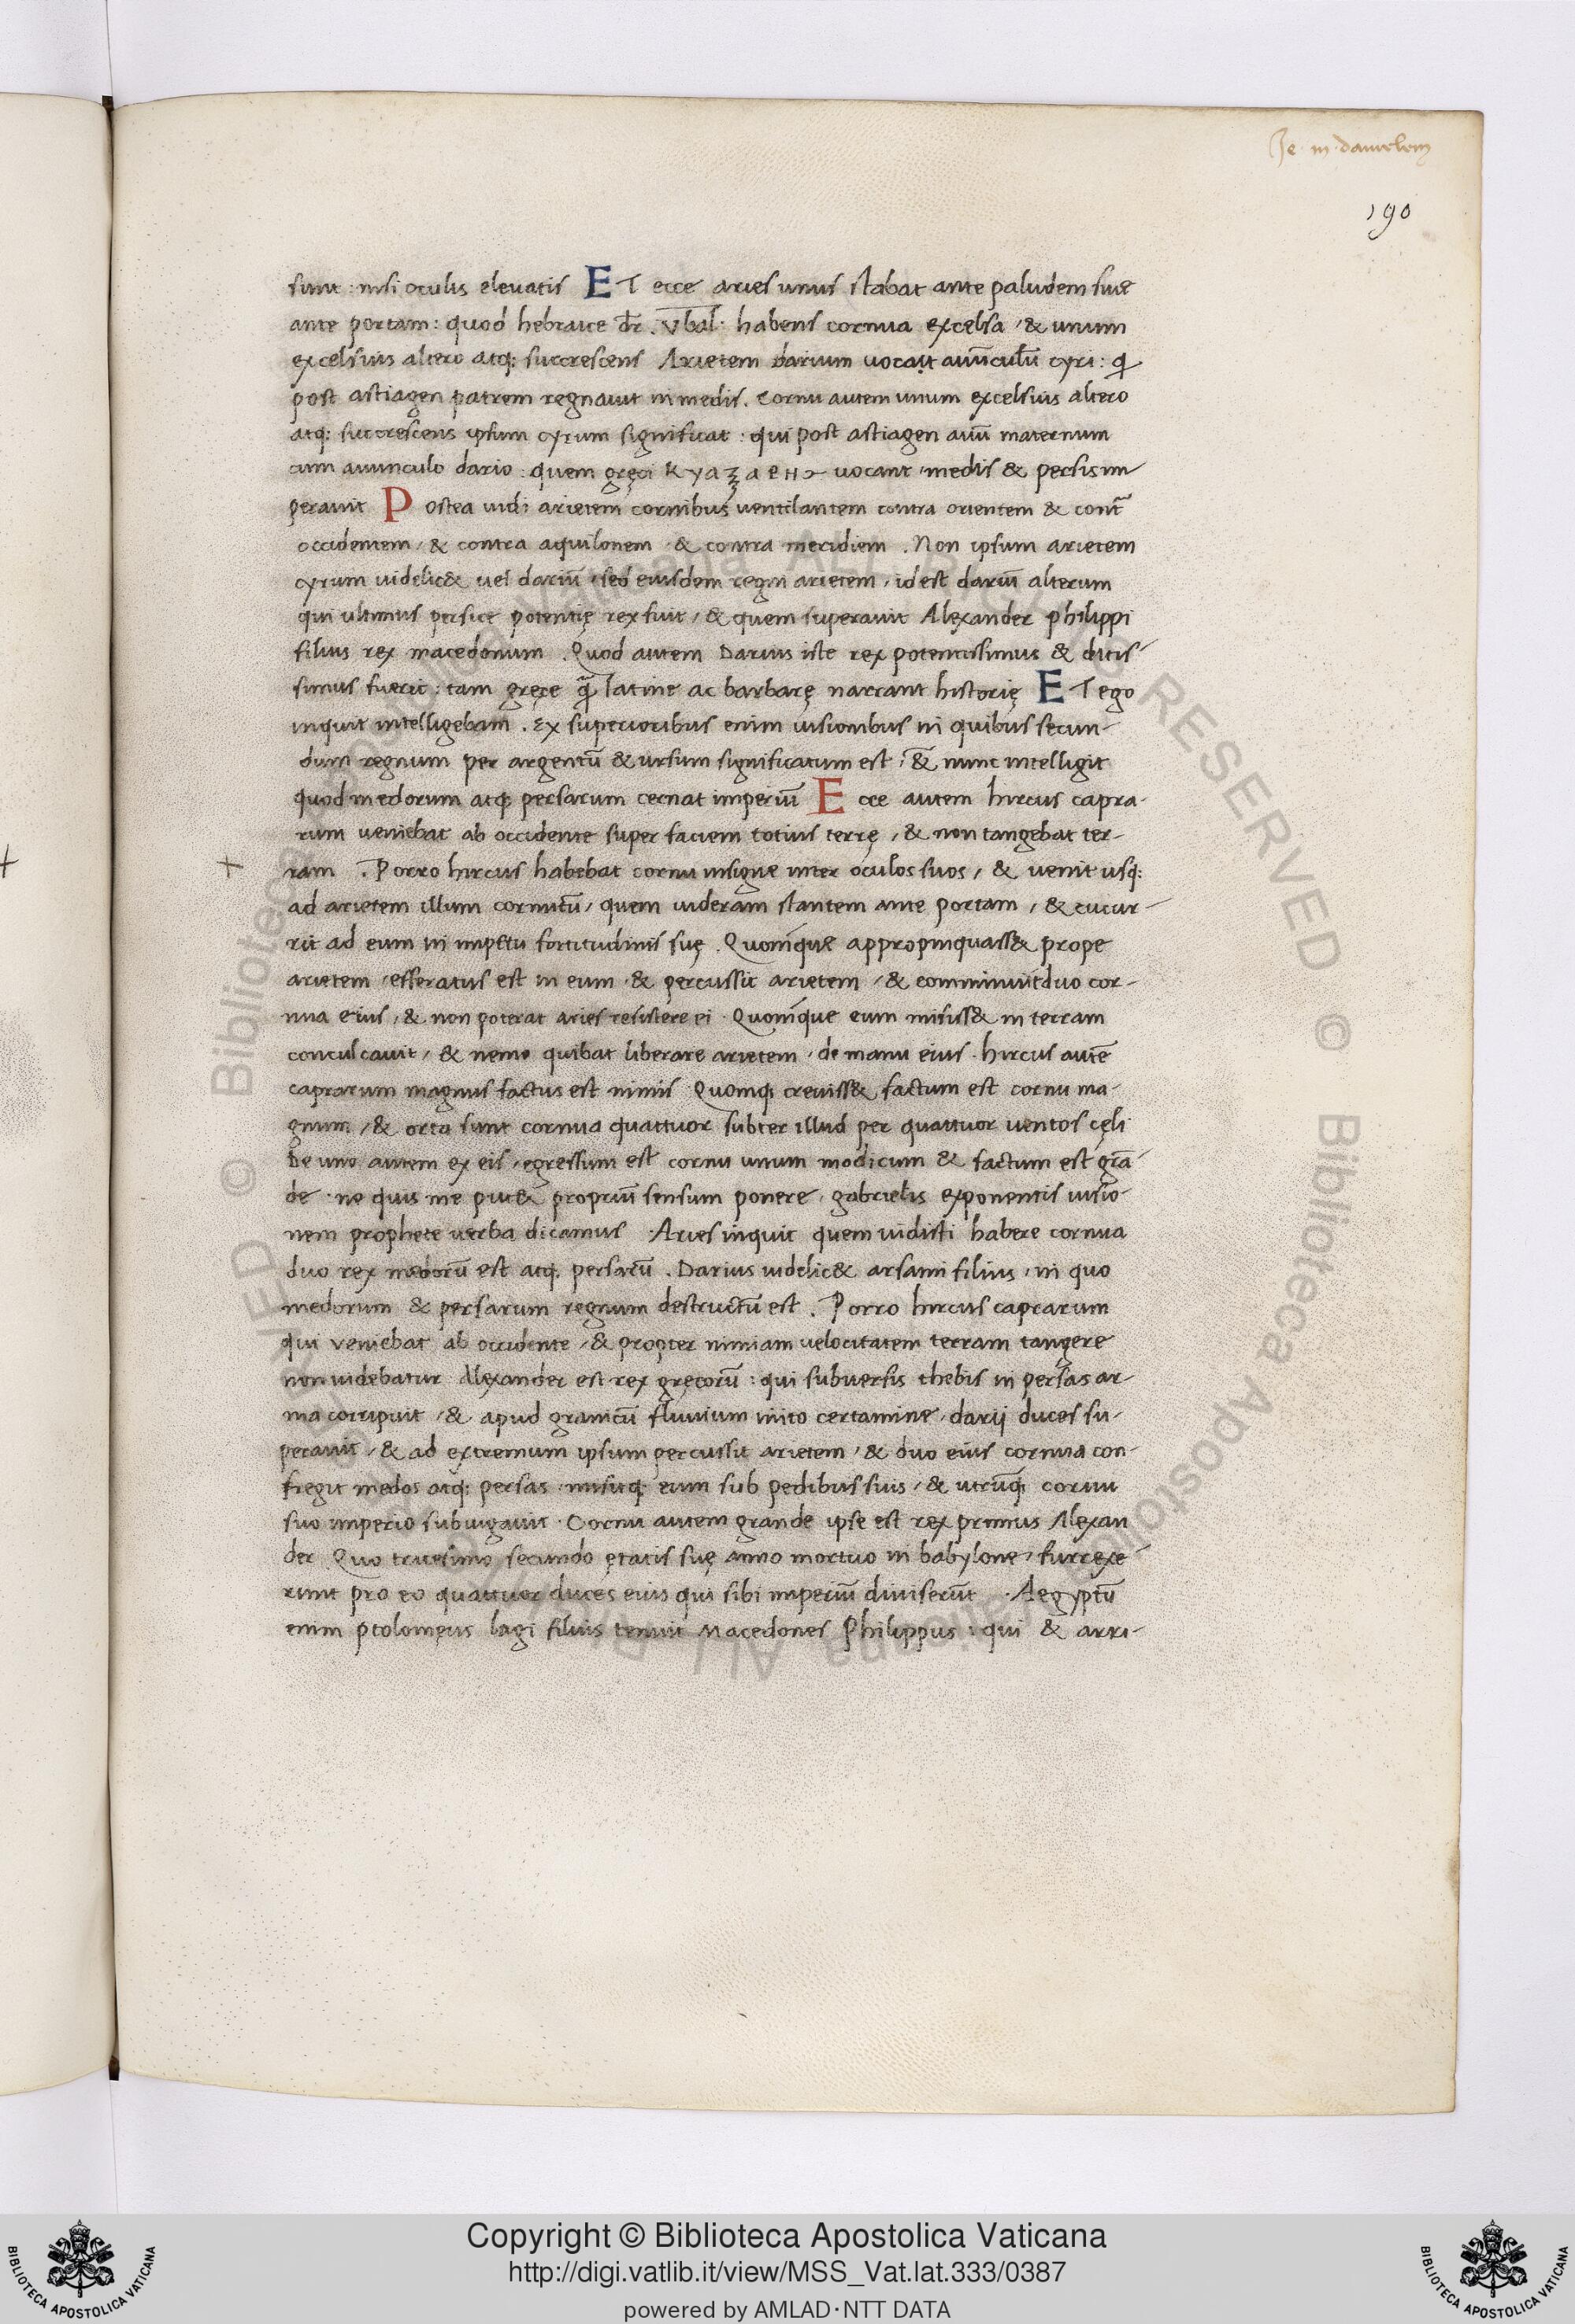 Je in danielem
190
sunt : nisi oculis elevatis ET ecce aries unus stabat ante paludem sive
ante portam : quod hebraice dr̄ . Vbal : habens cornua excelsa / & unum
excelsius altero atq; succrescens Arietem darium vocat auūculū cyri : q
post astiagen patrem regnavit in medis . Cornu autem unum excelsius altero
atq; succrescens ipsum cyrum significat : qui post astiagen auū maternum
cum avunculo dario : quem gręci vocant medis & persis im
peravit Postea vidi arietem cornibus ventilantem contra orientem & cont̄
occidentem / & contra aquilonem & contra meridiem . Non ipsum arietem
cyrum videlic& vel dariū / sed eiusdem regni arietem , id est dariū alterum
qui ultimus persice potentię rex fuit / & quem superavit Alexander philippi
filius rex macedonum . Quod autem Darius iste rex potentissimus & ditis-
simus fuerit : tam gręce q̄ latine ac barbarę narrant historię ET ego
inquit intelligebam . Ex superioribus enim visionibus in quibus secun-
dum regnum per argentū & ursum significatum est : & nunc intelligit
quod medorum atq; persarum cernat imperiū Ecce autem hircus capra-
rum veniebat ab occidente super faciem totius terrę / & non tangebat ter-
ram . Porro hircus habebat cornu insigne inter oculos suos / & venit usq;
ad arietem illum cornutū / quem videram stantem ante portam / & cucur-
rit ad eum in impetu fortitudinis suę . Quom̄que appropinquass& prope
arietem / efferatus est in eum & percussit arietem / & comminuit duo cor-
nua eius / & non poterat aries resistere ei . Quom̄que eum misiss& in terram
conculcavit / & nemo quibat liberare arietem / de manu eius . hircus autē
caprarum magnus factus est nimis Quomq; creviss& factum est cornu ma-
gnum / & orta sunt cornua quattuor subter illud per quattuor ventos cęli
De uno autem ex eis / egressum est cornu unum modicum & factum est grā-
de . ne quis me put& propriū sensum ponere . gabrielis exponentis visio-
nem prophete verba dicamus . Aries inquit quem vidisti habere cornua
duo rex medorū est atq; persarū . Darius videlic& arsami filius / in quo
medorum & persarum regnum destructū est . Porro hircus caprarum
qui veniebat ab occidente / & propter nimiam velocitatem terram tangere
non videbatur Alexander est rex gręcorū : qui subversis thebis in persas ar-
ma corripuit / & apud granicū fluvium inito certamine / darij duces su-
peravit / & ad extremum ipsum percussit arietem / & duo eius cornua con-
fregit medos atq; persas . misitq; eum sub pedibus suis / & utrūq; cornu
suo imperio subiugavit . Cornu autem grande ipse est rex primus Alexan
der Quo tricesimo secundo ętatis suę anno mortuo in babylone / surrexe-
runt pro eo quattuor duces eius qui sibi imperiū diviserūt . Aegyptū
enim ptolomęus lagi filius tenuit Macedones Philippus : qui & arri-
Copyright © Biblioteca Apostolica Vaticana
http://digi.vatlib.it/view/MSS_Vat.lat.333/0387
powered by AMLAD·NTT DATA
BIBLIOTECA APOSTOLICA VATICANA
BIBLIOTECA APOSTOLICA VATICANA